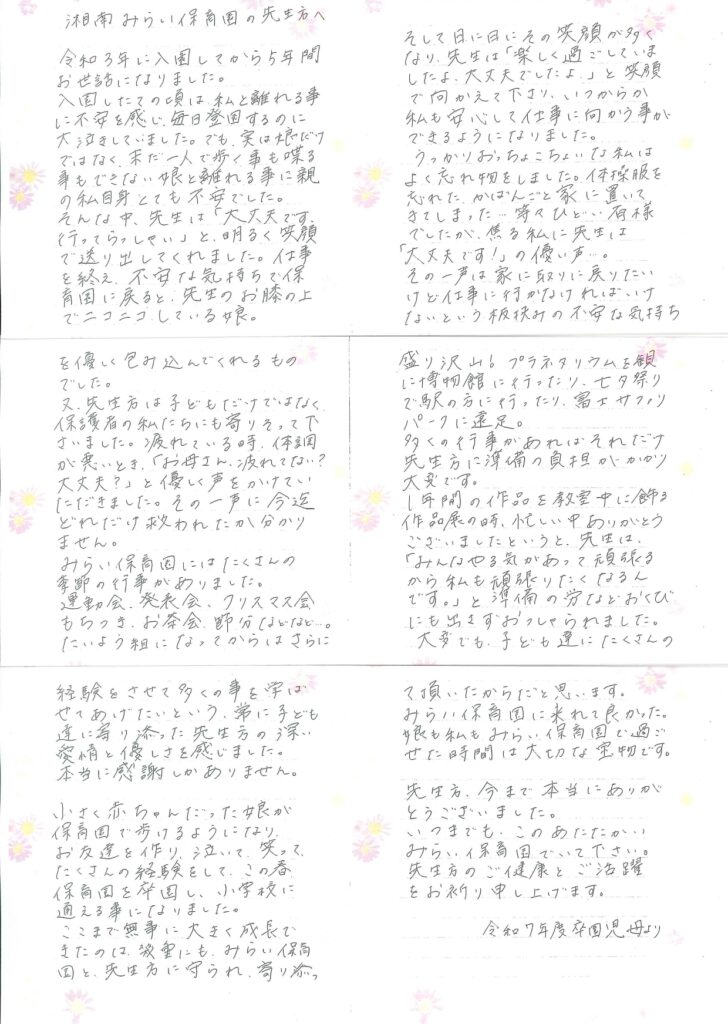 湘南みらい保育園の先生方へ
令和3年に入園してから5年間
お世話になりました。
入園したての頃は、私と離れる事
に不安を感じ、毎日登園するのに
大泣きしていました。でも、実は娘だけ
ではなく、未だ一人で歩く事も喋る
事もできない娘と離れる事に親
の私自身とても不安でした。
そんな中、先生は「大丈夫です、
行ってらっしゃい」と、明るく笑顔
で送り出してくれました。仕事
を終え、不安な気持ちで保
育園に戻ると、先生のお膝の上
でニコニコしている娘。
そして日に日にその笑顔が多く
なり、先生は「楽しく過ごしていま
したよ、大丈夫でしたよ。」と笑顔
で向かえて下さり、いつからか
私も安心して仕事に向かう事が
できるようになりました。
うっかりおっちょこちょいな私は
よく忘れ物をしました。体操服を
忘れた、かばんごと家に置いて
きてしまった…等々ひどい有様
でしたが、焦る私に先生は
「大丈夫です!」の優しい声…。
その一声は家に取りに戻りたい
けど仕事に行かなければいけ
ないという板挟みの不安な気持ち
を優しく包み込んでくれるもの
でした。
又、先生方は子どもだけではなく、
保護者の私たちにも寄りそって下
さいました。疲れている時、体調
が悪いとき、「お母さん、疲れてない?
大丈夫?」と優しく声をかけてい
ただきました。その一声に今迄
どれだけ救われたか分かり
ません。
みらい保育園にはたくさんの
季節の行事がありました。
運動会、発表会、クリスマス会
もちつき、お茶会、節分などなど…。
たいよう組になってからはさらに
盛り沢山!プラネタリウムを観
に博物館に行ったり、七夕祭り
で駅の方に行ったり、富士サファリ
パークに遠足。
多くの行事があればそれだけ
先生方に準備の負担がかかり
大変です。
1年間の作品を教室中に飾る
作品展の時、忙しい中ありがとう
ございましたというと、先生は、
「みんなやる気があって頑張る
から私も頑張りたくなるん
です。」と準備の労などおくび
にも出さずおっしゃられました。
大変でも、子ども達にたくさんの
経験をさせて多くの事を学ば
せてあげたいという、常に子ども
達に寄り添った先生方の深い
愛情と優しさを感じました。
本当に感謝しかありません。
小さく赤ちゃんだった娘が
保育園で歩けるようになり、
お友達を作り、泣いて、笑って、
たくさんの経験をして、この春
保育園を卒園し、小学校に
通える事になりました。
ここまで無事に大きく成長で
きたのは、幾重にも、みらい保育
園と、先生方に守られ、寄り添っ
て頂いたからだと思います。
みらい保育園に来れて良かった。
娘も私もみらい保育園で過ご
せた時間は大切な宝物です。
先生方、今まで本当にありが
とうございました。
いつまでも、このあたたかい
みらい保育園でいて下さい。
先生方のご健康とご活躍
をお祈り申し上げます。
令和7年度卒園児母より